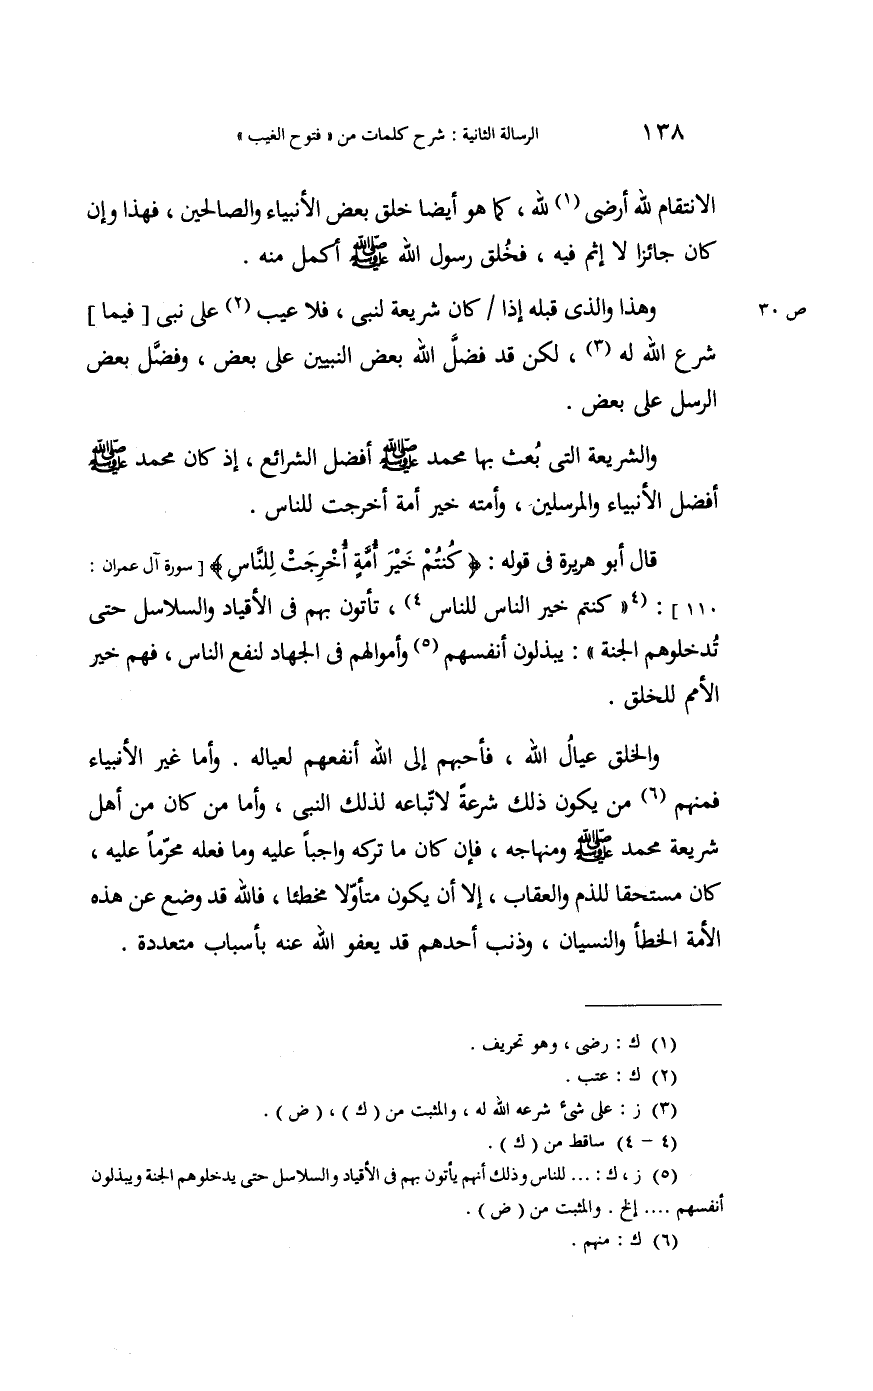 ١٣٨ الرسالة الثانية : شرح كلمات من « فتوح الغيب »
الانتقام لله أرضى (١) لله ، كما هو أيضا خلق بعض الأنبياء والصالحين ، فهذا وإن
كان جائزا لا إثم فيه ، فخُلق رسول الله ﷺ أكمل منه .
ص ٣٠ وهذا والذى قبله إذا / كان شريعة لنبى ، فلا عيب (٢) على نبى [ فيما ]
شرع الله له (٣) ، لكن قد فضلَّ الله بعض النبيين على بعض ، وفضَّل بعض
الرسل على بعض .
والشريعة التى بُعث بها محمد ﷺ أفضل الشرائع ، إذ كان محمد ﷺ
أفضل الأنبياء والمرسلين ، وأمته خير أمة أخرجت للناس .
قال أبو هريرة فى قوله : ﴿ كُنتُمْ خَيْرَ أُمَّةٍ أُخْرِجَتْ لِلنَّاسِ ﴾ [ سورة آل عمران :
١١٠ ] : (٤« كنتم خير الناس للناس ٤) ، تأتون بهم فى الأقياد والسلاسل حتى
تُدخلوهم الجنة » : يبذلون أنفسهم (٥) وأموالهم فى الجهاد لنفع الناس ، فهم خير
الأمم للخلق .
والخلق عيالُ الله ، فأحبهم إلى الله أنفعهم لعياله . وأما غير الأنبياء
فمنهم (٦) من يكون ذلك شرعةً لاتّباعه لذلك النبى ، وأما من كان من أهل
شريعة محمد ﷺ ومنهاجه ، فإن كان ما تركه واجباً عليه وما فعله محرّماً عليه ،
كان مستحقا للذم والعقاب ، إلا أن يكون متأوّلا مخطئا ، فالله قد وضع عن هذه
الأمة الخطأ والنسيان ، وذنب أحدهم قد يعفو الله عنه بأسباب متعددة .
(١) ك : رضى ، وهو تحريف .
(٢) ك : عتب .
(٣) ز : على شىء شرعه الله له ، والمثبت من ( ك ) ، ( ض ) .
(٤ – ٤) ساقط من ( ك ) .
(٥) ز ، ك : ... للناس وذلك أنهم يأتون بهم فى الأقياد والسلاسل حتى يدخلوهم الجنة ويبذلون
أنفسهم .... إلخ . والمثبت من ( ض ) .
(٦) ك : منهم .